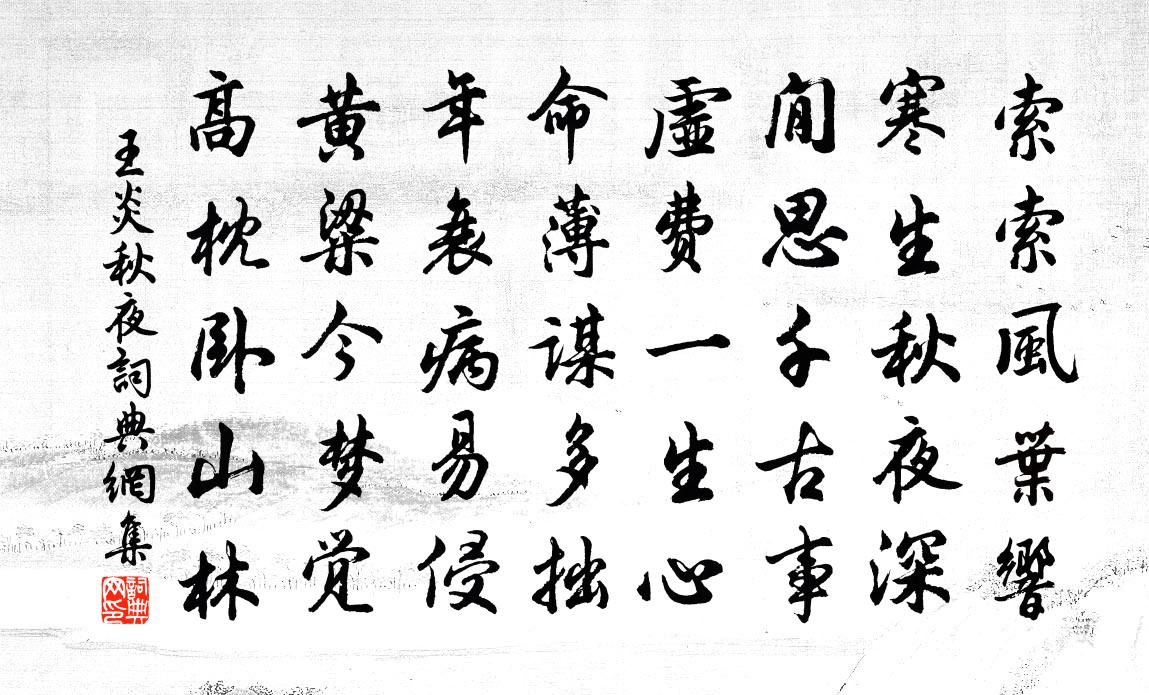 索索風葉響
寒生秋夜深
閒思千古事
虛費一生心
命薄謀多拙
年衰病易侵
黃粱今梦覺
高枕卧山林
王炎秋夜詞典網集
詞典网印